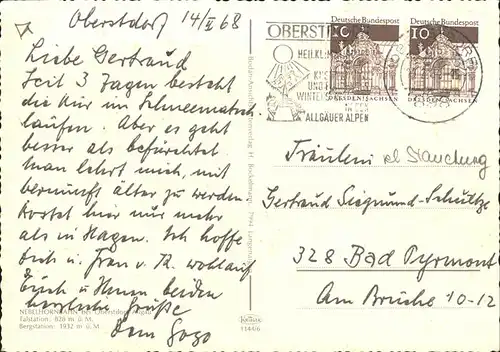 Oberstdorf 14/V 68
Liebe Gertraud
Seit 3 Tagen besteht
die Kur im Schneematsch
laufen. Aber es geht
besser als befürchtet.
Man lehrt mich, mit
Vernunft älter zu werden
Kostet hier nur mehr
als in Hagen. Ich hoffe
Dich u. Frau v. Th. wohlauf
Euch u Ihnen beiden
herzliche Grüße
Dein Gogo
NEBELHORNBAHN bei Oberstdorf/Allgäu
Talstation: 828 m ü. M.
Bergstation: 1932 m ü. M.
1144/6
Deutsche Bundespost
10
DRESDEN/SACHSEN
Deutsche Bundespost
10
DRESDEN/SACHSEN
HEILKLIM
UND
WINTERS
IN DEN
ALLGÄUER ALPEN
Fräulein
Gertraud Siegmund-Schultze
328 Bad Pyrmont
Am Brüche 10-12